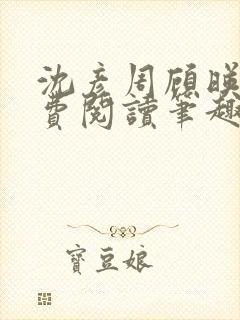 沈彦周顧晚
費閱讀筆趣
寶豆娘